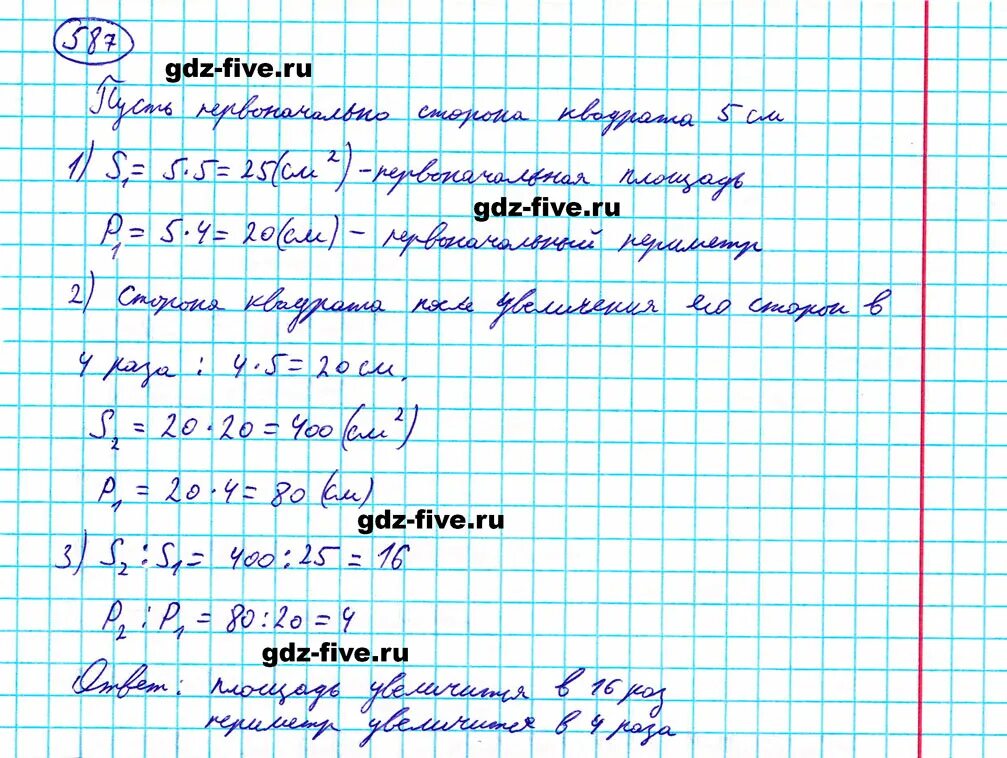 587
gdz-five.ru
Пусть первоначально сторона квадрата 5 см
1) S₁ = 5·5 = 25(см²) - первоначальная площадь
gdz-five.ru
P₁ = 5·4 = 20(см) - первоначальный периметр
2) Сторона квадрата после увеличения его сторон в
4 раза : 4·5 = 20 см.
S₂ = 20·20 = 400 (см²)
P₁ = 20·4 = 80 (см)
gdz-five.ru
3) S₂ : S₁ = 400 : 25 = 16
P₂ : P₁ = 80 : 20 = 4
gdz-five.ru
Ответ: площадь увеличится в 16 раз
периметр увеличится в 4 раза